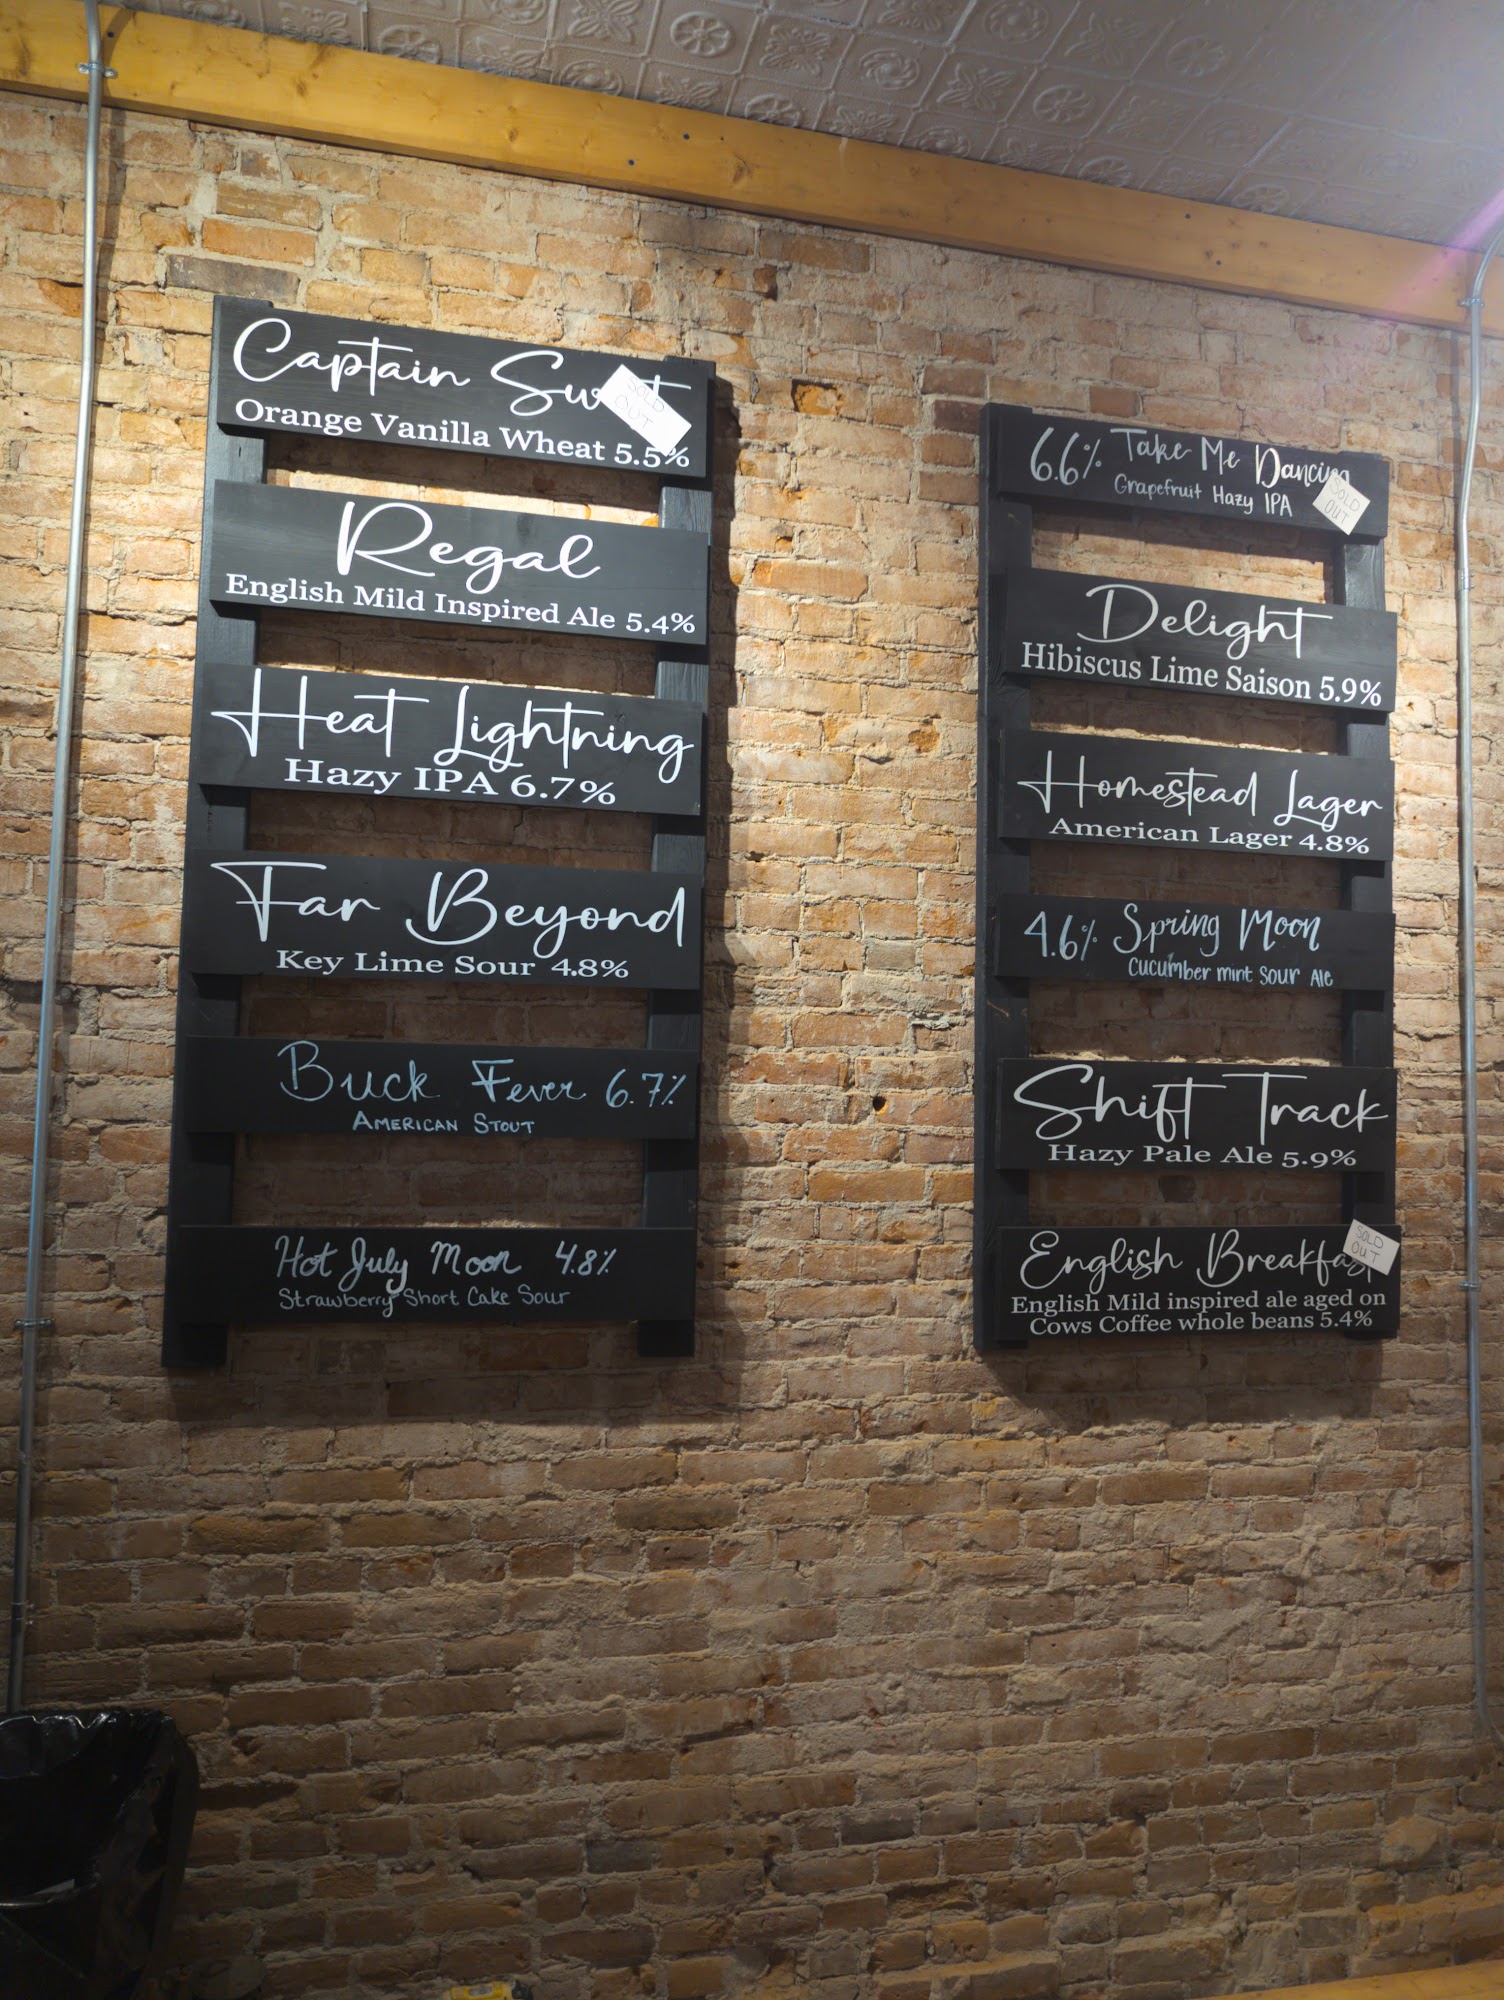 Captain
SOLD
OUT
Orange Vanilla Wheat 5.5%
Regal
English Mild Inspired Ale 5.4%
Heat Lightning
Hazy IPA 6.7%
Far Beyond
Key Lime Sour 4.8%
Buck Fever 6.7%
American Stout
Hot July Moon 4.8%
Strawberry Short Cake Sour
6.6% Take Me Dancing
Grapefruit Hazy IPA
SOLD
OUT
Delight
Hibiscus Lime Saison 5.9%
Homestead Lager
American Lager 4.8%
4.6% Spring Moon
Cucumber mint Sour Ale
Shift Track
Hazy Pale Ale 5.9%
English Breakfast
SOLD
OUT
English Mild inspired ale aged on
Cows Coffee whole beans 5.4%